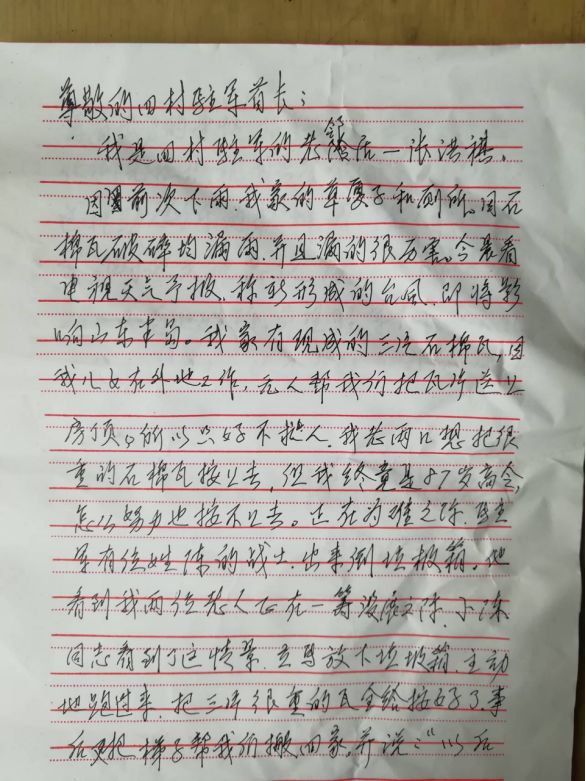 尊敬的田村驻军首长：
我是田村驻军的老邻居一张洪祺.
因前次下雨.我家的草厦子和厕所.因石
棉瓦破碎均漏雨.并且漏的很厉害。今晨看
电视天气予报.称新形成的台风.即将影
响山东半岛。我家有现成的三片石棉瓦,因
我儿女在外地工作.无人帮我们把瓦片送上
房顶,所以只好不找人.我老两口想把很
重的石棉瓦按上去,但我终竟是87岁高令,
怎么努力也按不上去。正在为难之际.
军有位姓陈的战士.出来倒垃圾箱.他
看到我两位老人正在一筹没展之际.小陈
同志看到了这情景.立马放下垃圾箱.主动
地跑过来.把三片很重的瓦全给按好了.事
后又把梯子帮我们搬回家.并说：“以后